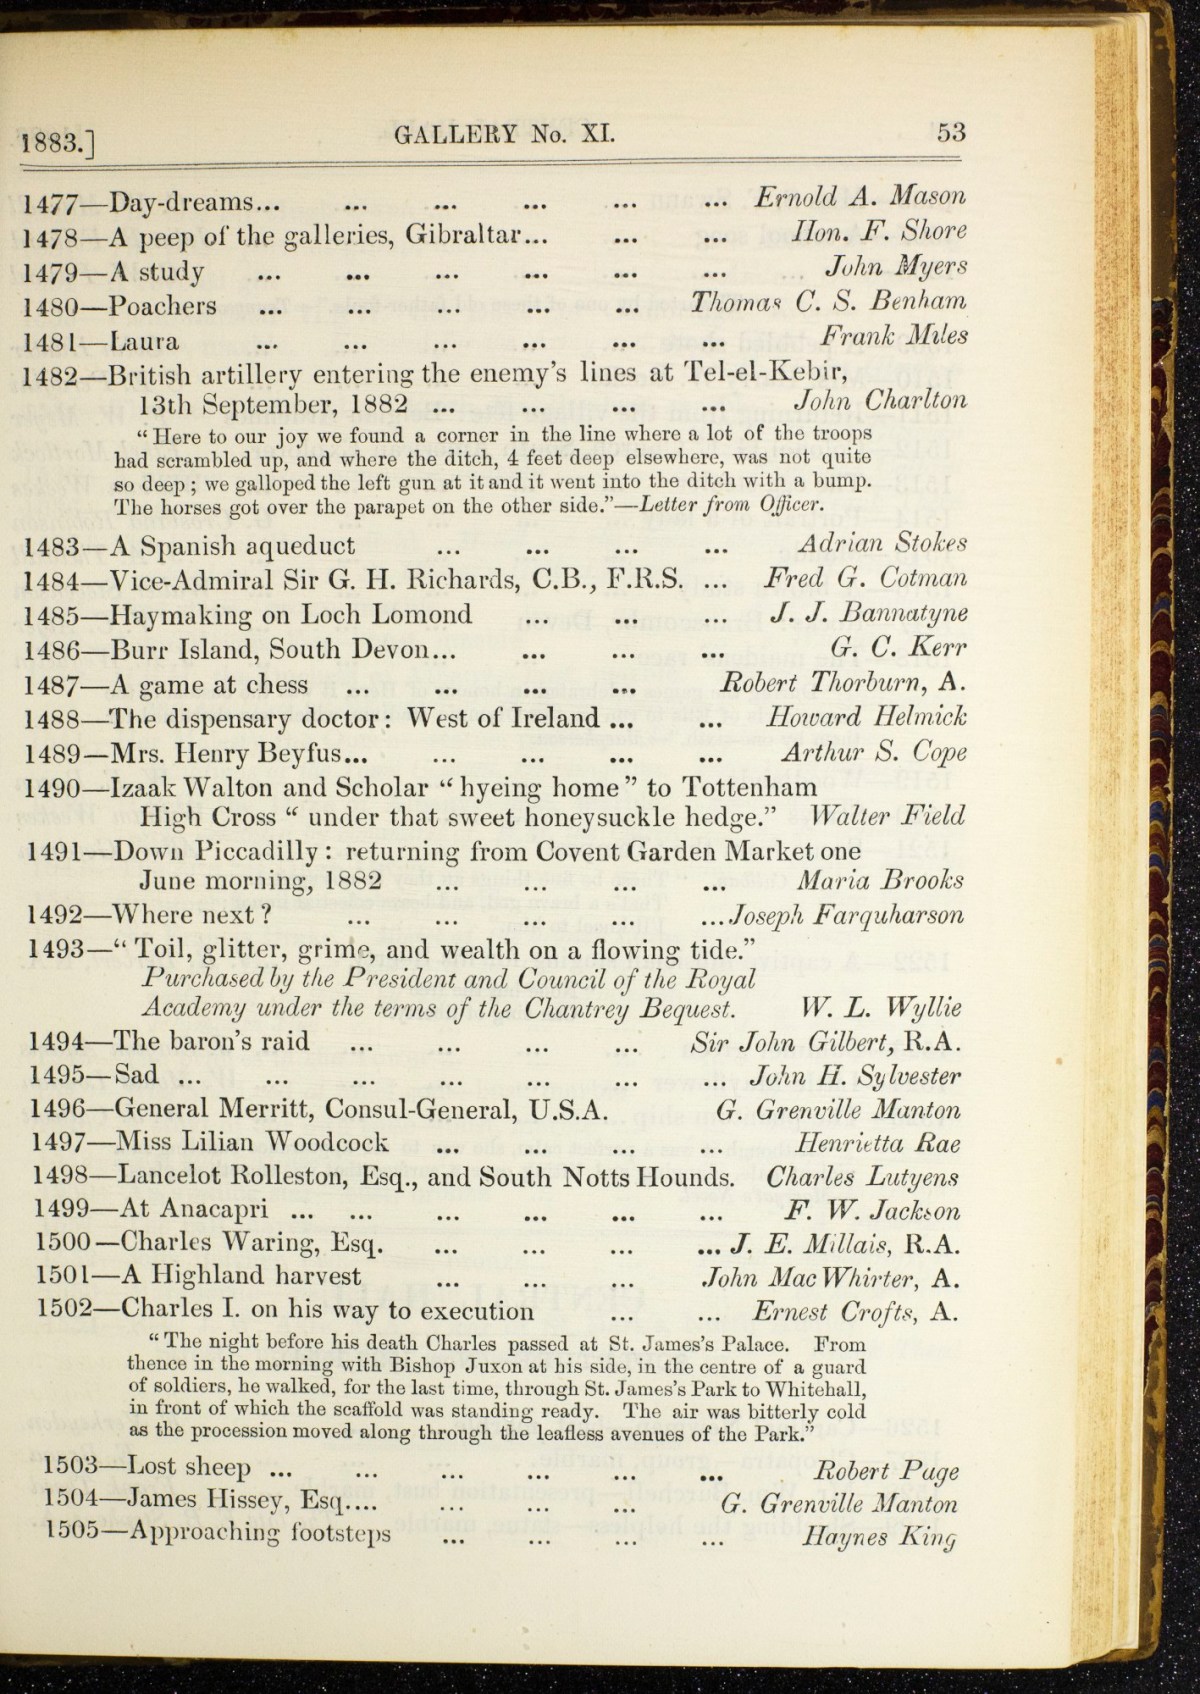 1883.] GALLERY No. XI. 53
1477—Day-dreams... ... ... ... ... ... Ernold A. Mason
1478—A peep of the galleries, Gibraltar... ... ... Hon. F. Shore
1479—A study ... ... ... ... ... ... John Myers
1480—Poachers ... ... ... ... ... Thomas C. S. Benham
1481—Laura ... ... ... ... ... ... Frank Miles
1482—British artillery entering the enemy's lines at Tel-el-Kebir,
13th September, 1882 ... ... ... ... John Charlton
"Here to our joy we found a corner in the line where a lot of the troops
had scrambled up, and where the ditch, 4 feet deep elsewhere, was not quite
so deep; we galloped the left gun at it and it went into the ditch with a bump.
The horses got over the parapet on the other side."—Letter from Officer.
1483—A Spanish aqueduct ... ... ... ... Adrian Stokes
1484—Vice-Admiral Sir G. H. Richards, C.B., F.R.S. ... Fred G. Cotman
1485—Haymaking on Loch Lomond ... ... ... J. J. Bannatyne
1486—Burr Island, South Devon... ... ... ... G. C. Kerr
1487—A game at chess ... ... ... ... Robert Thorburn, A.
1488—The dispensary doctor: West of Ireland ... ... Howard Helmick
1489—Mrs. Henry Beyfus... ... ... ... ... Arthur S. Cope
1490—Izaak Walton and Scholar "hyeing home" to Tottenham
High Cross "under that sweet honeysuckle hedge." Walter Field
1491—Down Piccadilly: returning from Covent Garden Market one
June morning, 1882 ... ... ... ... Maria Brooks
1492—Where next? ... ... ... ... ... Joseph Farquharson
1493—"Toil, glitter, grime, and wealth on a flowing tide."
Purchased by the President and Council of the Royal
Academy under the terms of the Chantrey Bequest. W. L. Wyllie
1494—The baron's raid ... ... ... ... Sir John Gilbert, R.A.
1495—Sad ... ... ... ... ... ... ... John H. Sylvester
1496—General Merritt, Consul-General, U.S.A. G. Grenville Manton
1497—Miss Lilian Woodcock ... ... ... ... Henrietta Rae
1498—Lancelot Rolleston, Esq., and South Notts Hounds. Charles Lutyens
1499—At Anacapri ... ... ... ... ... ... F. W. Jackson
1500—Charles Waring, Esq. ... ... ... ... J. E. Millais, R.A.
1501—A Highland harvest ... ... ... John MacWhirter, A.
1502—Charles I. on his way to execution ... ... Ernest Crofts, A.
"The night before his death Charles passed at St. James's Palace. From
thence in the morning with Bishop Juxon at his side, in the centre of a guard
of soldiers, he walked, for the last time, through St. James's Park to Whitehall,
in front of which the scaffold was standing ready. The air was bitterly cold
as the procession moved along through the leafless avenues of the Park."
1503—Lost sheep ... ... ... ... ... ... Robert Page
1504—James Hissey, Esq.... ... ... ... G. Grenville Manton
1505—Approaching footsteps ... ... ... ... Haynes King